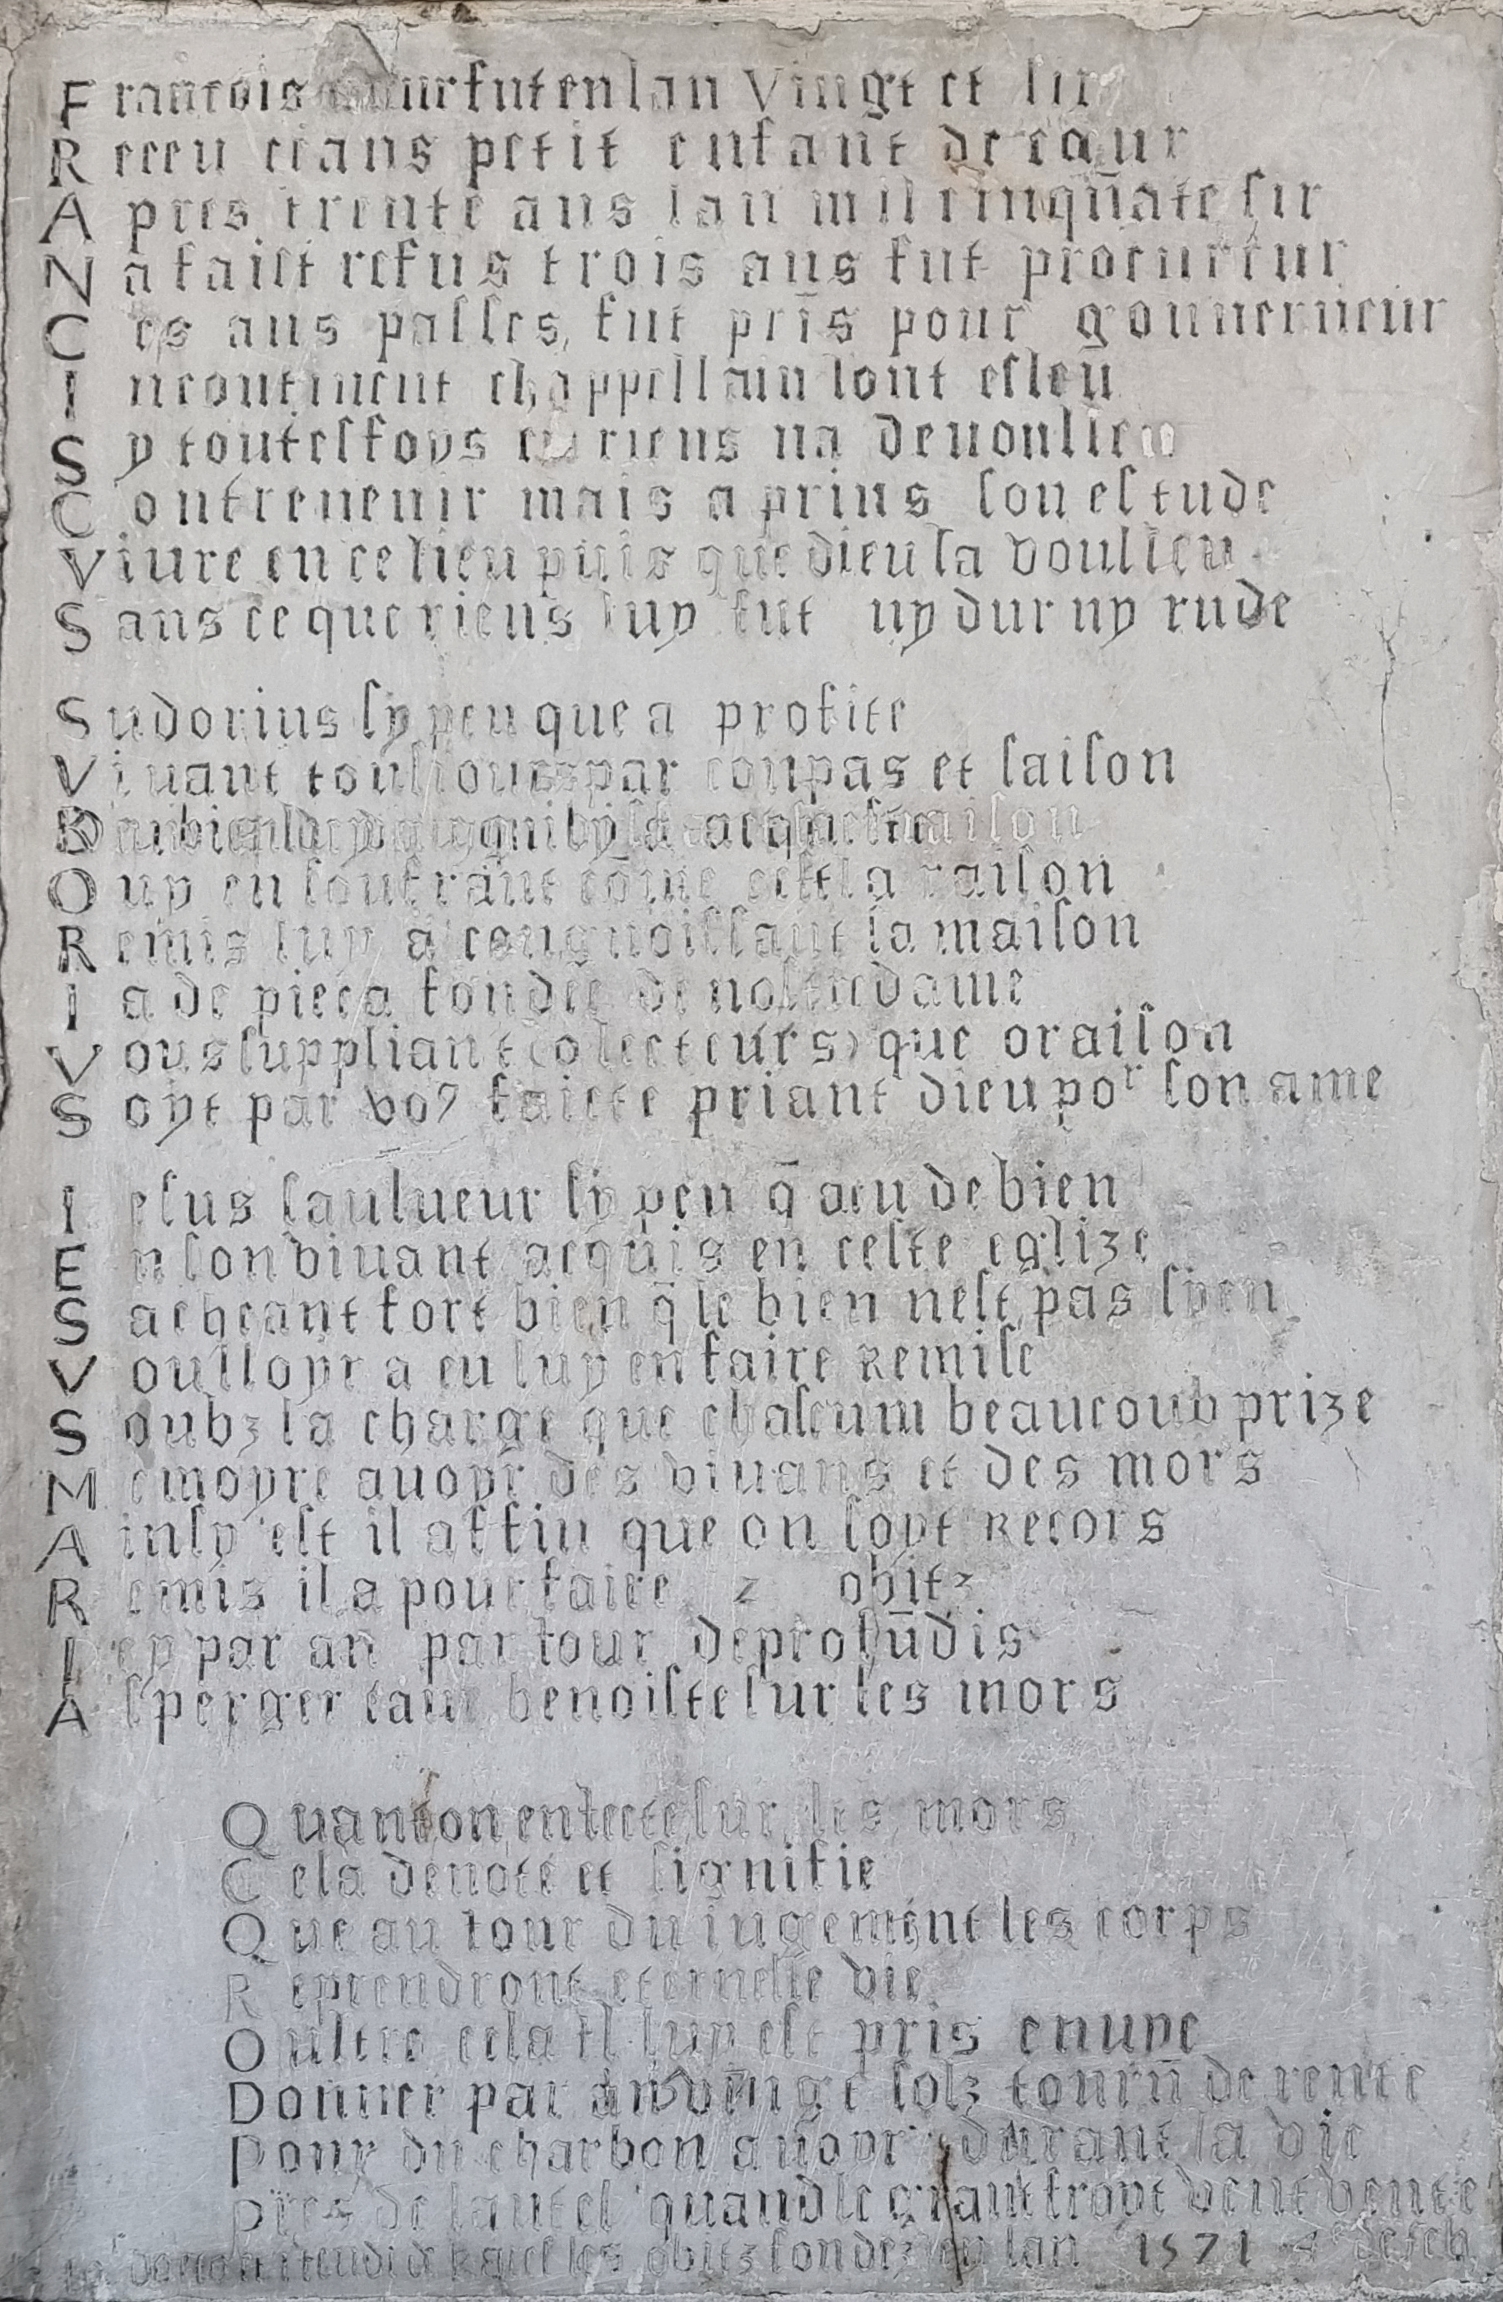 Francois sueur fut en lan Vingt et six
Receu ceans petit enfant de cœur
Apres trente ans lan mil cinqūate six
Na faict refus trois ans fut procureur
Ces ans passes fut pris pour gouuerneur
Incontinent chappellain lont esleu
Sy toutesfoys en riens na de voullen
Contreuenir mais a prins son estude
Viure en ce lieu puis que dieu la voulleu
Sans ce que riens luy fut ny dur ny rude
Sudorius sy peu que a profite
Viuant tousiours par conpas et saison
O
Ouy en soufrant cōme cest la raison
Remis luy a congnoissant la maison
Ia de pieca fondee de nostre dame
Vous suppliant (o lecteurs) que oraison
Soyt par vo9 faicte priant dieu poʳ son ame
Iesus saulueur sy peu q̄ a eu de bien
En son viuant acquis en ceste eglize
Sacheant fort bien q̄ le bien nest pas syen
Voulloyr a eu luy en faire Remise
Soubz la charge que chascum beaucoub prize
Memoyre auoyr des viuans et des mors
Ainsy est il affin que on soyt Recors
Remis il a pour faire 2 obitz
Icy par an par iour de profūdis
Asperger eaue benoiste sur les mors
Quant on en iecte sur les mors
Cela denote et signifie
Que au iour du iugement les corps
Reprendront eternelle vie
Oultre cela Il luy est pris enuye
Donner par an vingt solz tourñ de rente
Pour du charbon auoyr durant la vie
Pres de lautel quand le grant froyt vent vente
les obitz fondez lan 1571